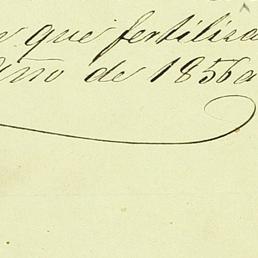 que fertiliza
Año de 1856